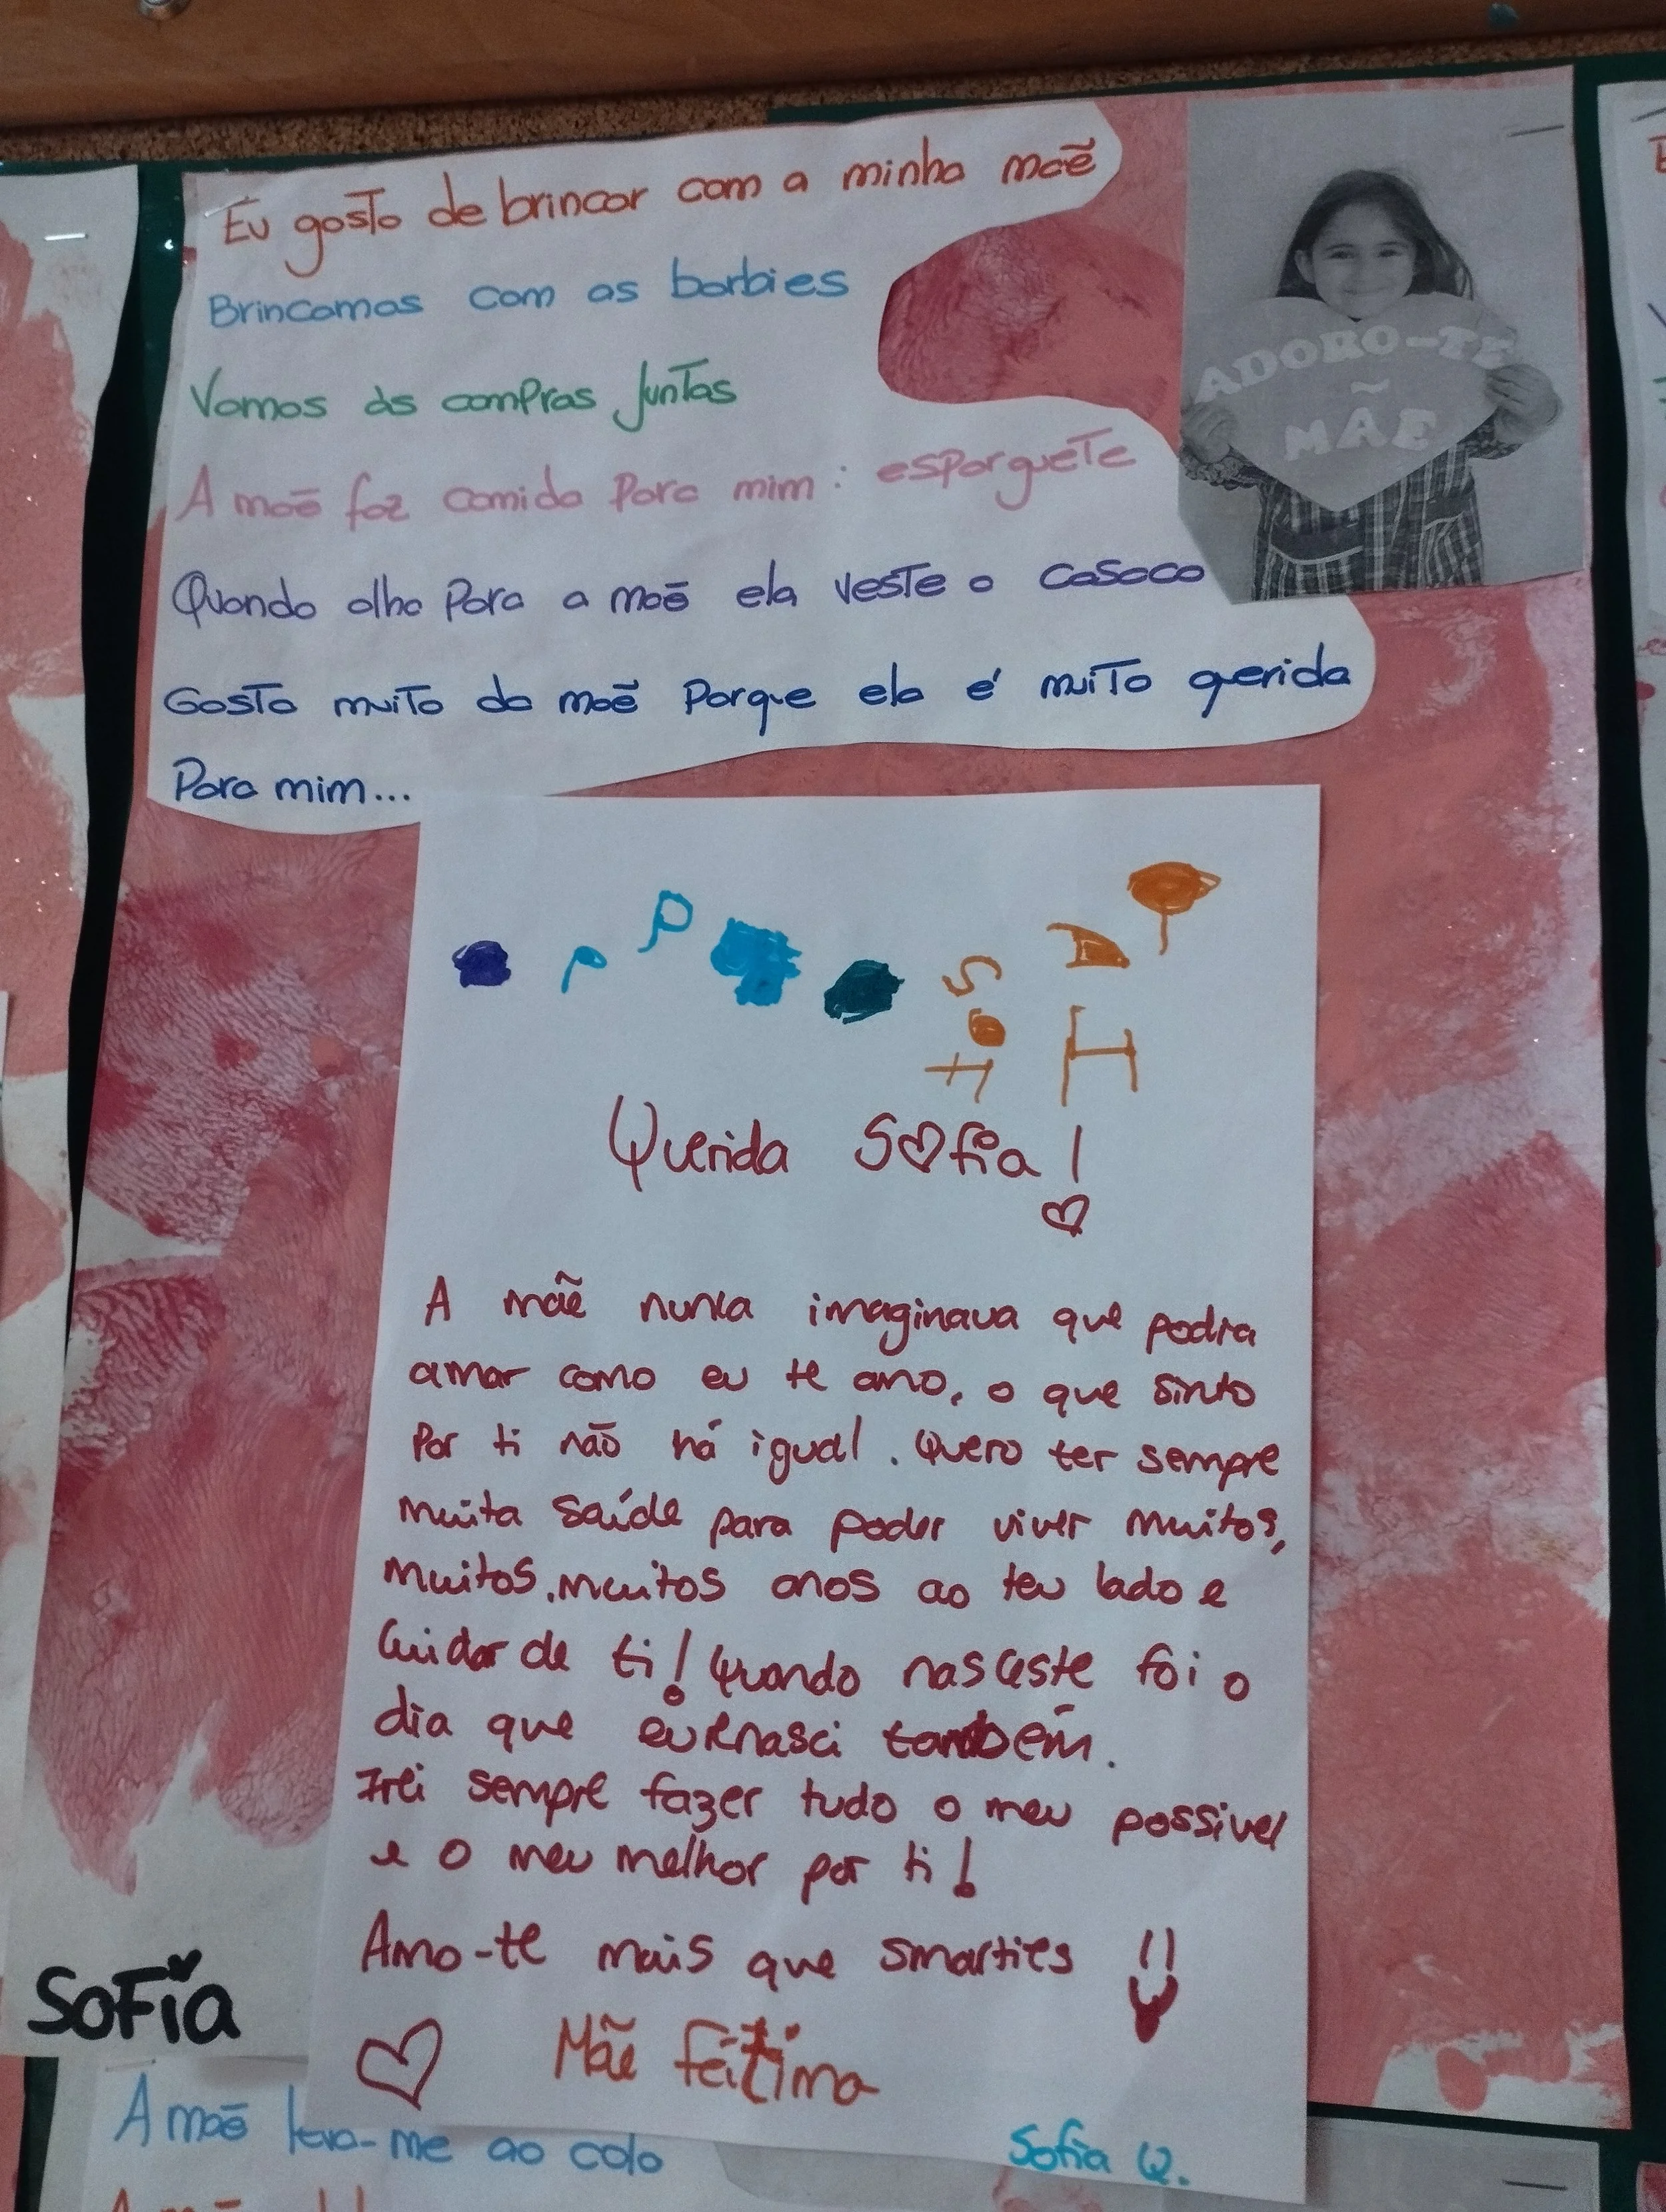 Eu gosto de brincar com a minha mãe
Brincamos com as barbies
Vamos às compras juntas
A mãe faz comida para mim: esparguete
Quando olho para a mãe ela veste o casaco
Gosto muito da mãe porque ela é muito querida
Para mim...
ADORO-TE
MÃE
Querida Sofia!
A mãe nunca imaginava que podia
amar como eu te amo, o que sinto
Por ti não há igual. Quero ter sempre
muita saúde para poder viver muitos,
muitos, muitos anos ao teu lado e
Cuidar de ti! Quando nasceste foi o
dia que eu Rnasci também.
Irei sempre fazer tudo o meu possivel
e o meu melhor por ti!
Amo-te mais que smarties !!
Mãe
Sofia Q.
SoFia
A mãe leva-me ao colo